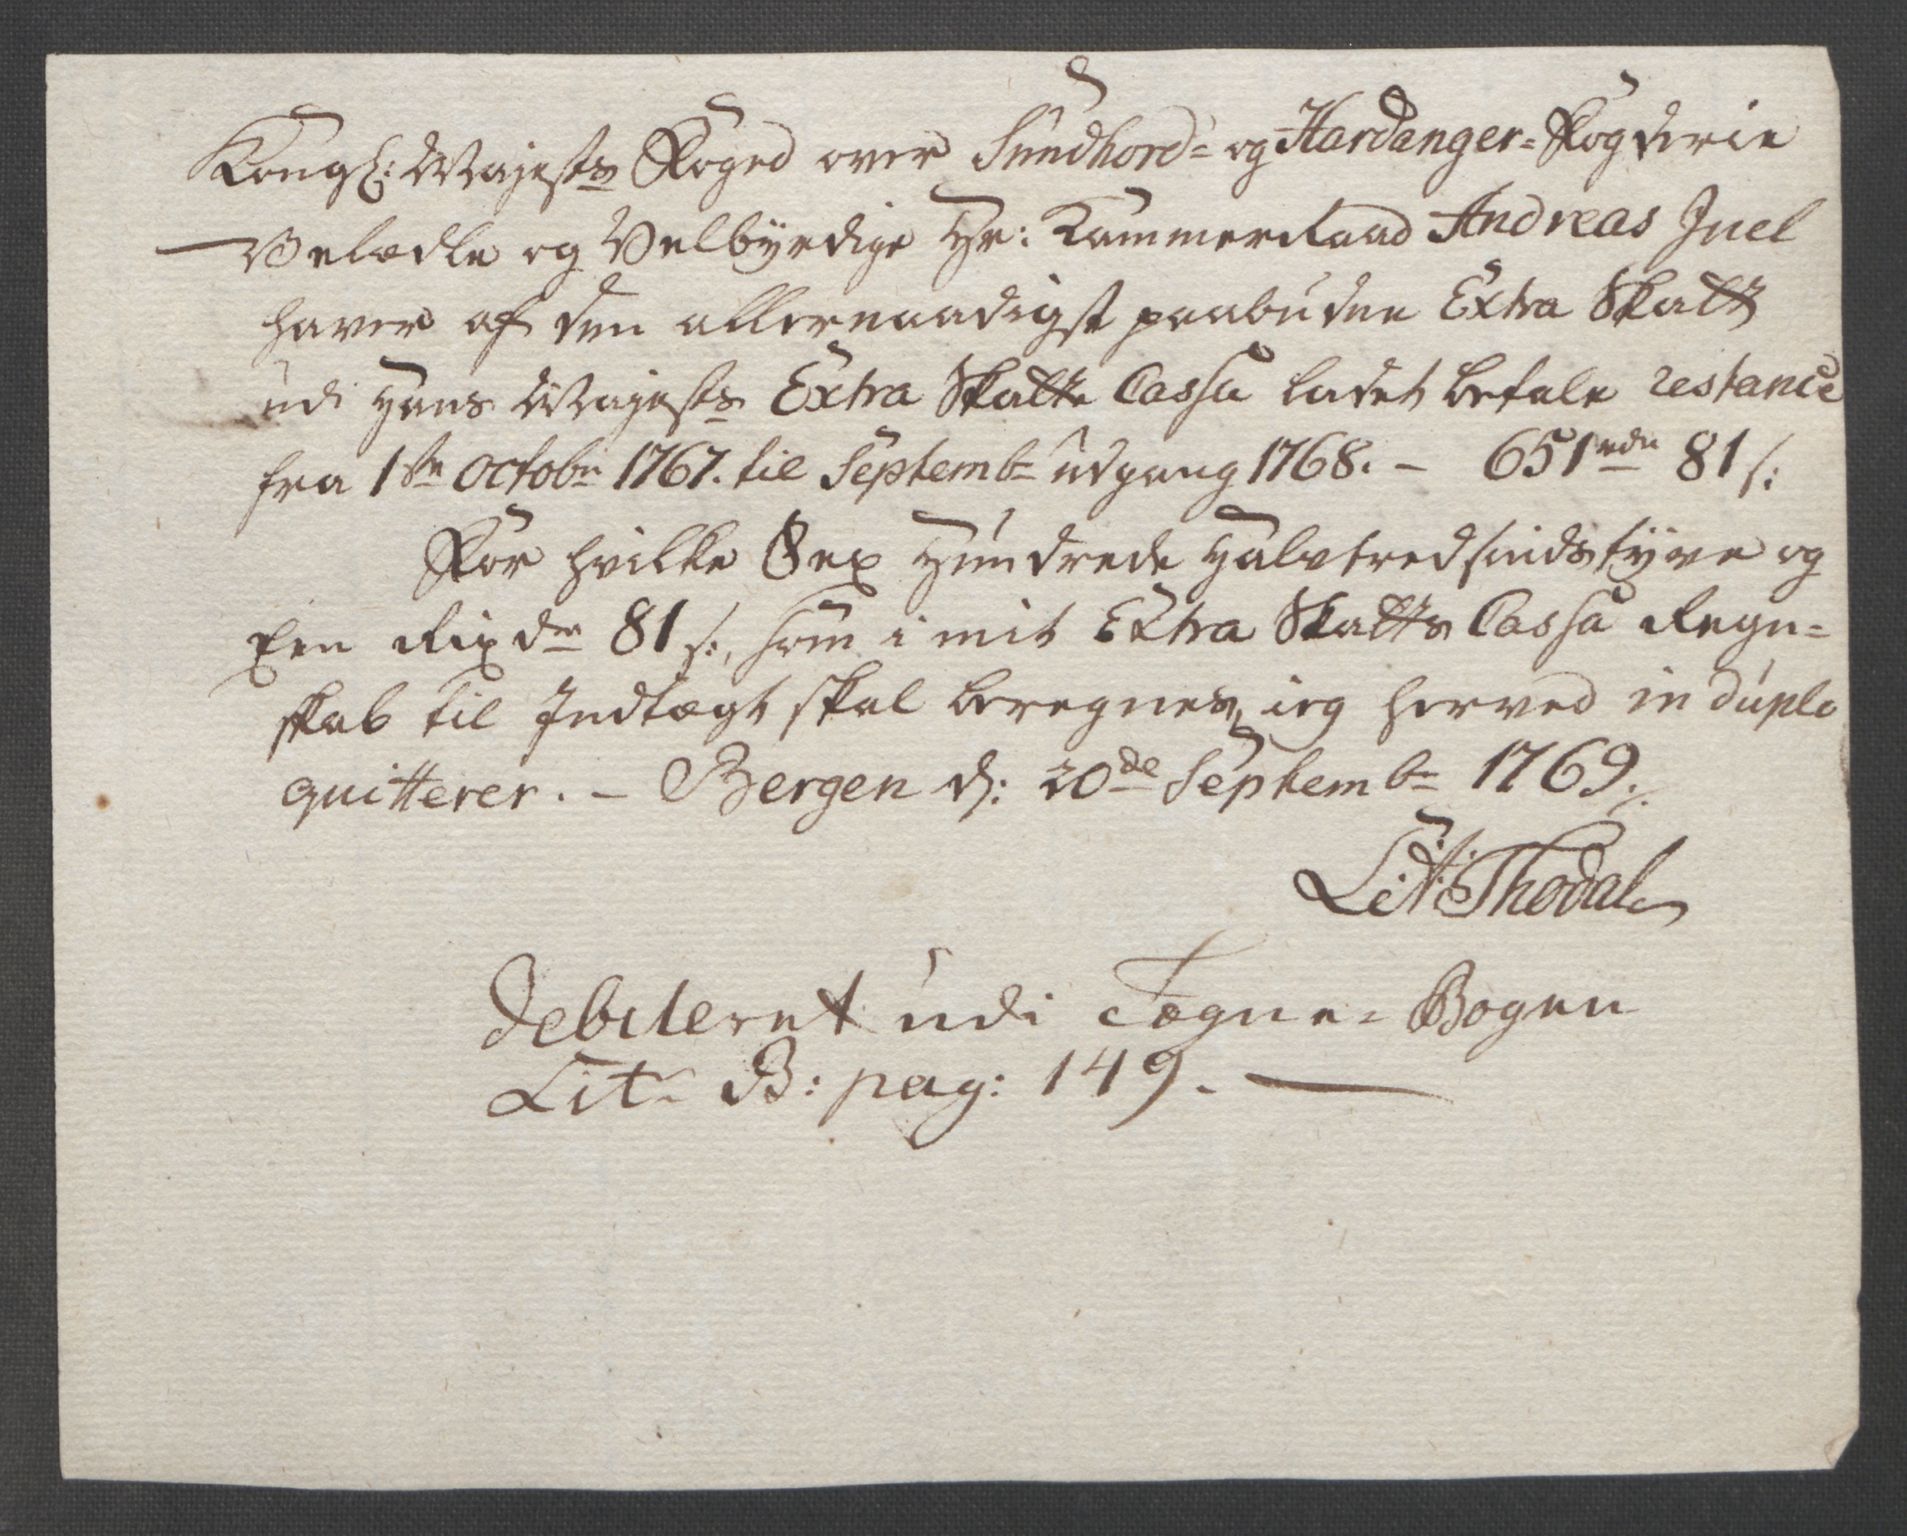 Kongl: Majests Foged over Sundhord= og Hardanger=Fogderie
Velædle og Velbyrdige Hr: Kammerraad Andreas Juel
haver af den allernaadigst paabudne Extra Skatt
udi Hans Majests Extra Skatte Cassa ladet betale restance
fra 1ste octobr 1767. til Septembr udgang 1768. – 651 rdr 81 s:
For hvilke Sex Hundrede Halvtredsindstyve og
Een Rixdr 81 s:, som i mit Extra Skatts Cassa Regn=
skab til Indtægt skal beregnes, ieg herved in duplo
quitterer. – Bergen d: 20de Septembr 1769.
L: A: Thodal
Debiteret udi Tegne=Bogen
Lit. B: pag: 149. —